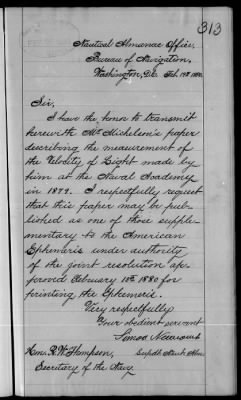 313
Nautical Almanac Office,
Bureau of Navigation,
Washington, D.C. Feb. 19th 1880.
Sir,
I have the honor to transmit
herewith Mr Michelson's paper
describing the measurement of
the Velocity of Light made by
him at the Naval Academy
in 1879. I respectfully request
that this paper may be pub-
lished as one of those supple-
mentary to the American
Ephemeris under authority
of the joint resolution ap-
proved February 10th 1880 for
printing the Ephemeris.
Very respectfully
Your obedient servant
Simon Newcomb
Hon. R. W. Thompson, Supdt Naut. Alm.
Secretary of the Navy